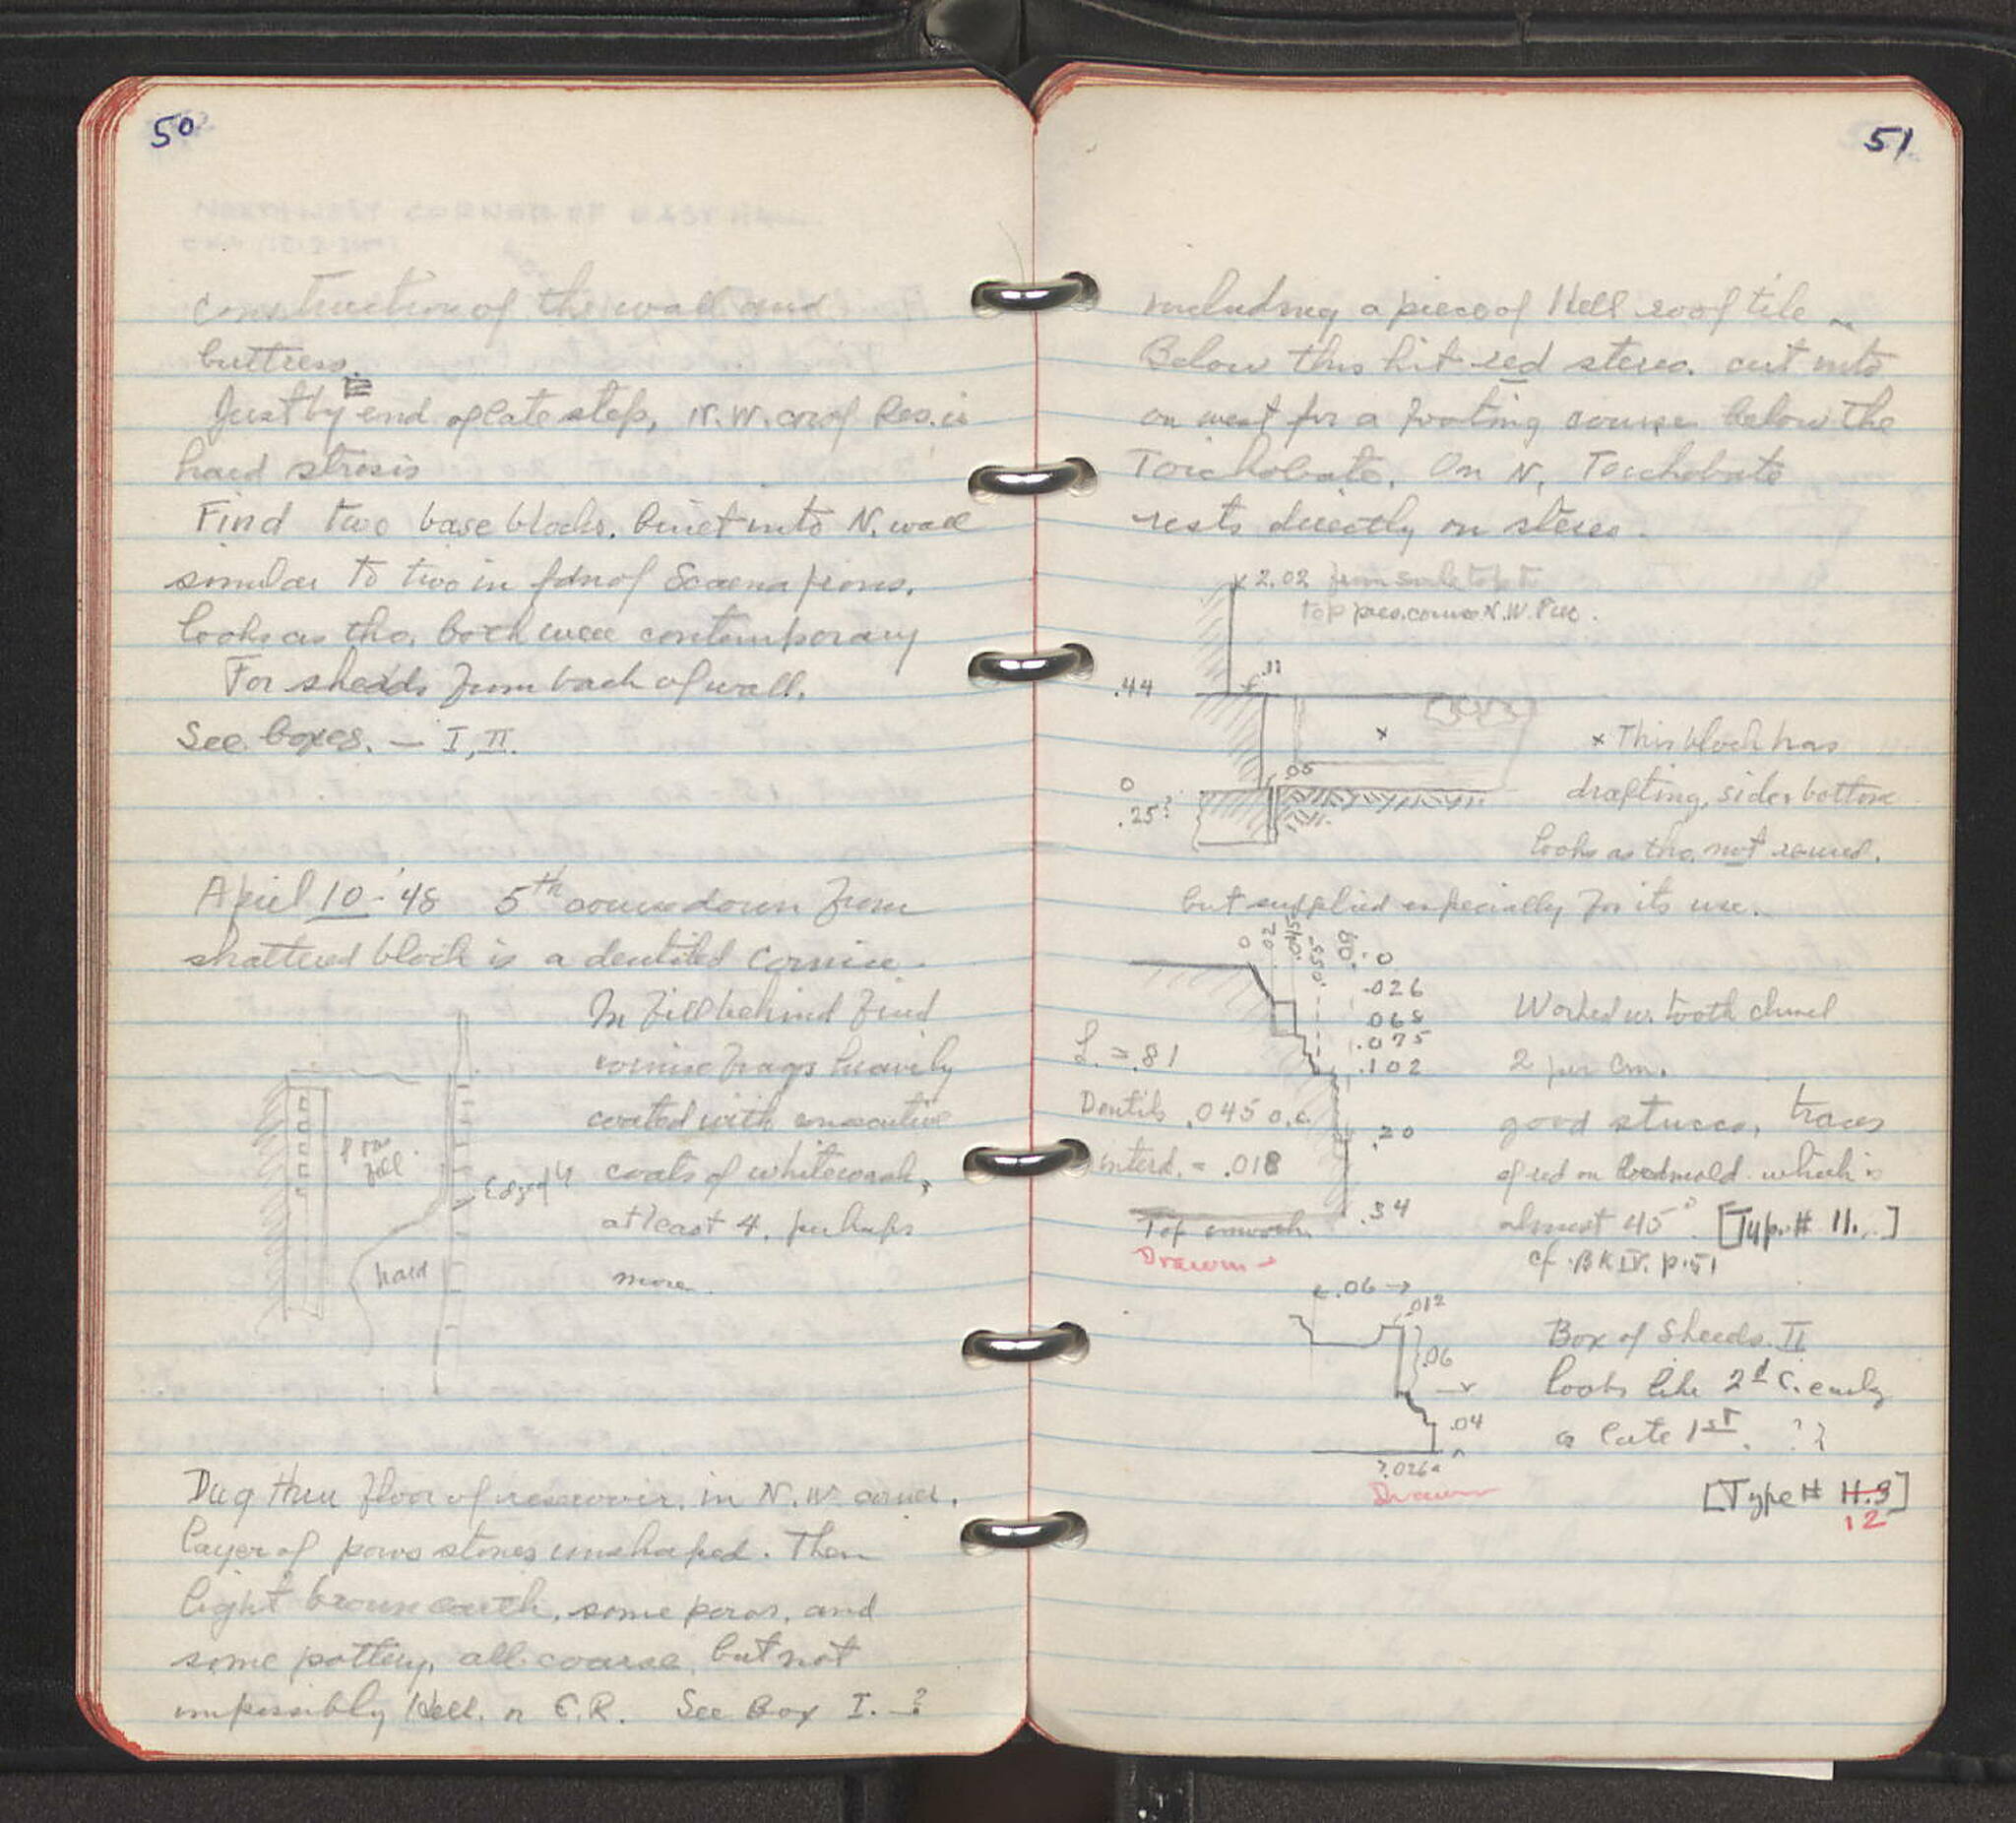 50
construction of the wall and
buttress.
Just by E end of late step, N.W. cor of Res. is
hard strosis
Find two base blocks, built into N. wall
similar to two in fdn of Scaena frons.
looks as tho. both were contemporary
For sherds from back of wall,
See boxes. — I, II.
April 10-'48 5th course down from
shattered block is a dentiled cornice.
In fill behind find
cornice frags heavily
coated with consecutive
coats of whitewash,
at least 4, perhaps
more.
poros
fill.
Edge
hard
Dug thru floor of reservoir, in N.W. corner.
layer of poros stones unshaped. Then
light brown earth, some poros, and
some pottery, all coarse, but not
impossibly Hell. or E.R. See Box I. — ?
51
including a piece of Hell roof tile —
Below this hit red stereo. cut into
on west for a footing course below the
Toichobate. On N, Toichobate
rests directly on stereo.
x 2.02 from
top pres. course N.W. Pier.
.44
.11
x
x This block has
.05
0
.25?
drafting, sides bottom
looks as tho. not reused.
but supplied especially for its use.
0 .02 .055 .08
0
.026
.068
.075
.102
Worked w. tooth chisel
2 per cm.
L. = .81
Dentils .045 o.c.
.20
good stucco, traces
Interd. = .018
of red on bedmold which is
.34
Top smooth.
almost 45° [Type # 11...]
Drawn
cf. BK IV. p.51
.06
.012
.06
.04
.026
Box of Sherds. II
looks like 2d C. early
or late 1st. ??
Drawn
[Type # 11.3]
12